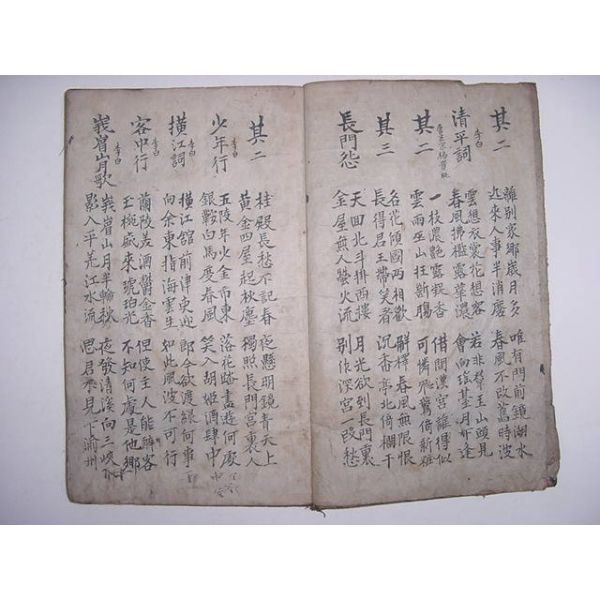 其二
離別家鄉歲月多
近來人事半消磨
唯有門前鏡湖水
春風不改舊時波
清平詞
李白
雲想衣裳花想容
春風拂檻露華濃
若非群玉山頭見
會向瑤臺月下逢
其二
一枝濃艶露凝香
雲雨巫山枉斷腸
借問漢宮誰得似
可憐飛鷰倚新粧
其三
名花傾國兩相歡
長得君王帶笑看
解釋春風無限恨
沉香亭北倚欄干
長門怨
天回北斗掛西樓
金屋無人螢火流
月光欲到長門裏
別作深宮一段愁
其二
桂殿長愁不記春
黃金四屋起秋塵
夜懸明鏡青天上
獨照長門宮裏人
少年行
李白
五陵年少金市東
銀鞍白馬度春風
落花踏盡遊何處
笑入胡姬酒肆中
橫江詞
李白
橫江館前津吏迎
向余東指海雲生
郎今欲渡緣何事
如此風波不可行
客中行
李白
蘭陵美酒鬱金香
玉椀盛來琥珀光
但使主人能醉客
不知何處是他鄉
峩眉山月歌
李白
峩眉山月半輪秋
影入平羌江水流
夜發清溪向三峽
思君不見下渝州